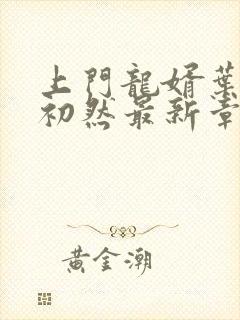 上門龍婿葉
初然最新章
黃金潮